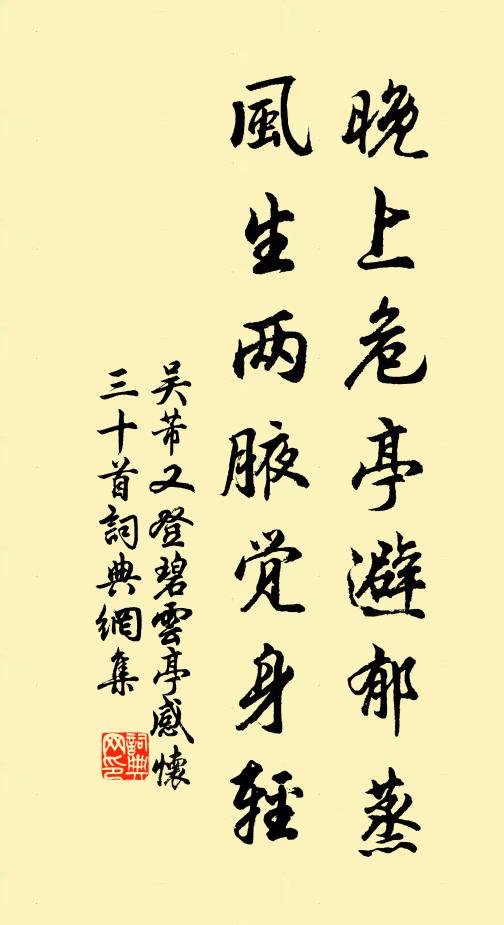 晚上危亭避郁蒸
風生两腋觉身輕
吴芾又登碧雲亭感懷
三十首詞典網集
詞典
网印